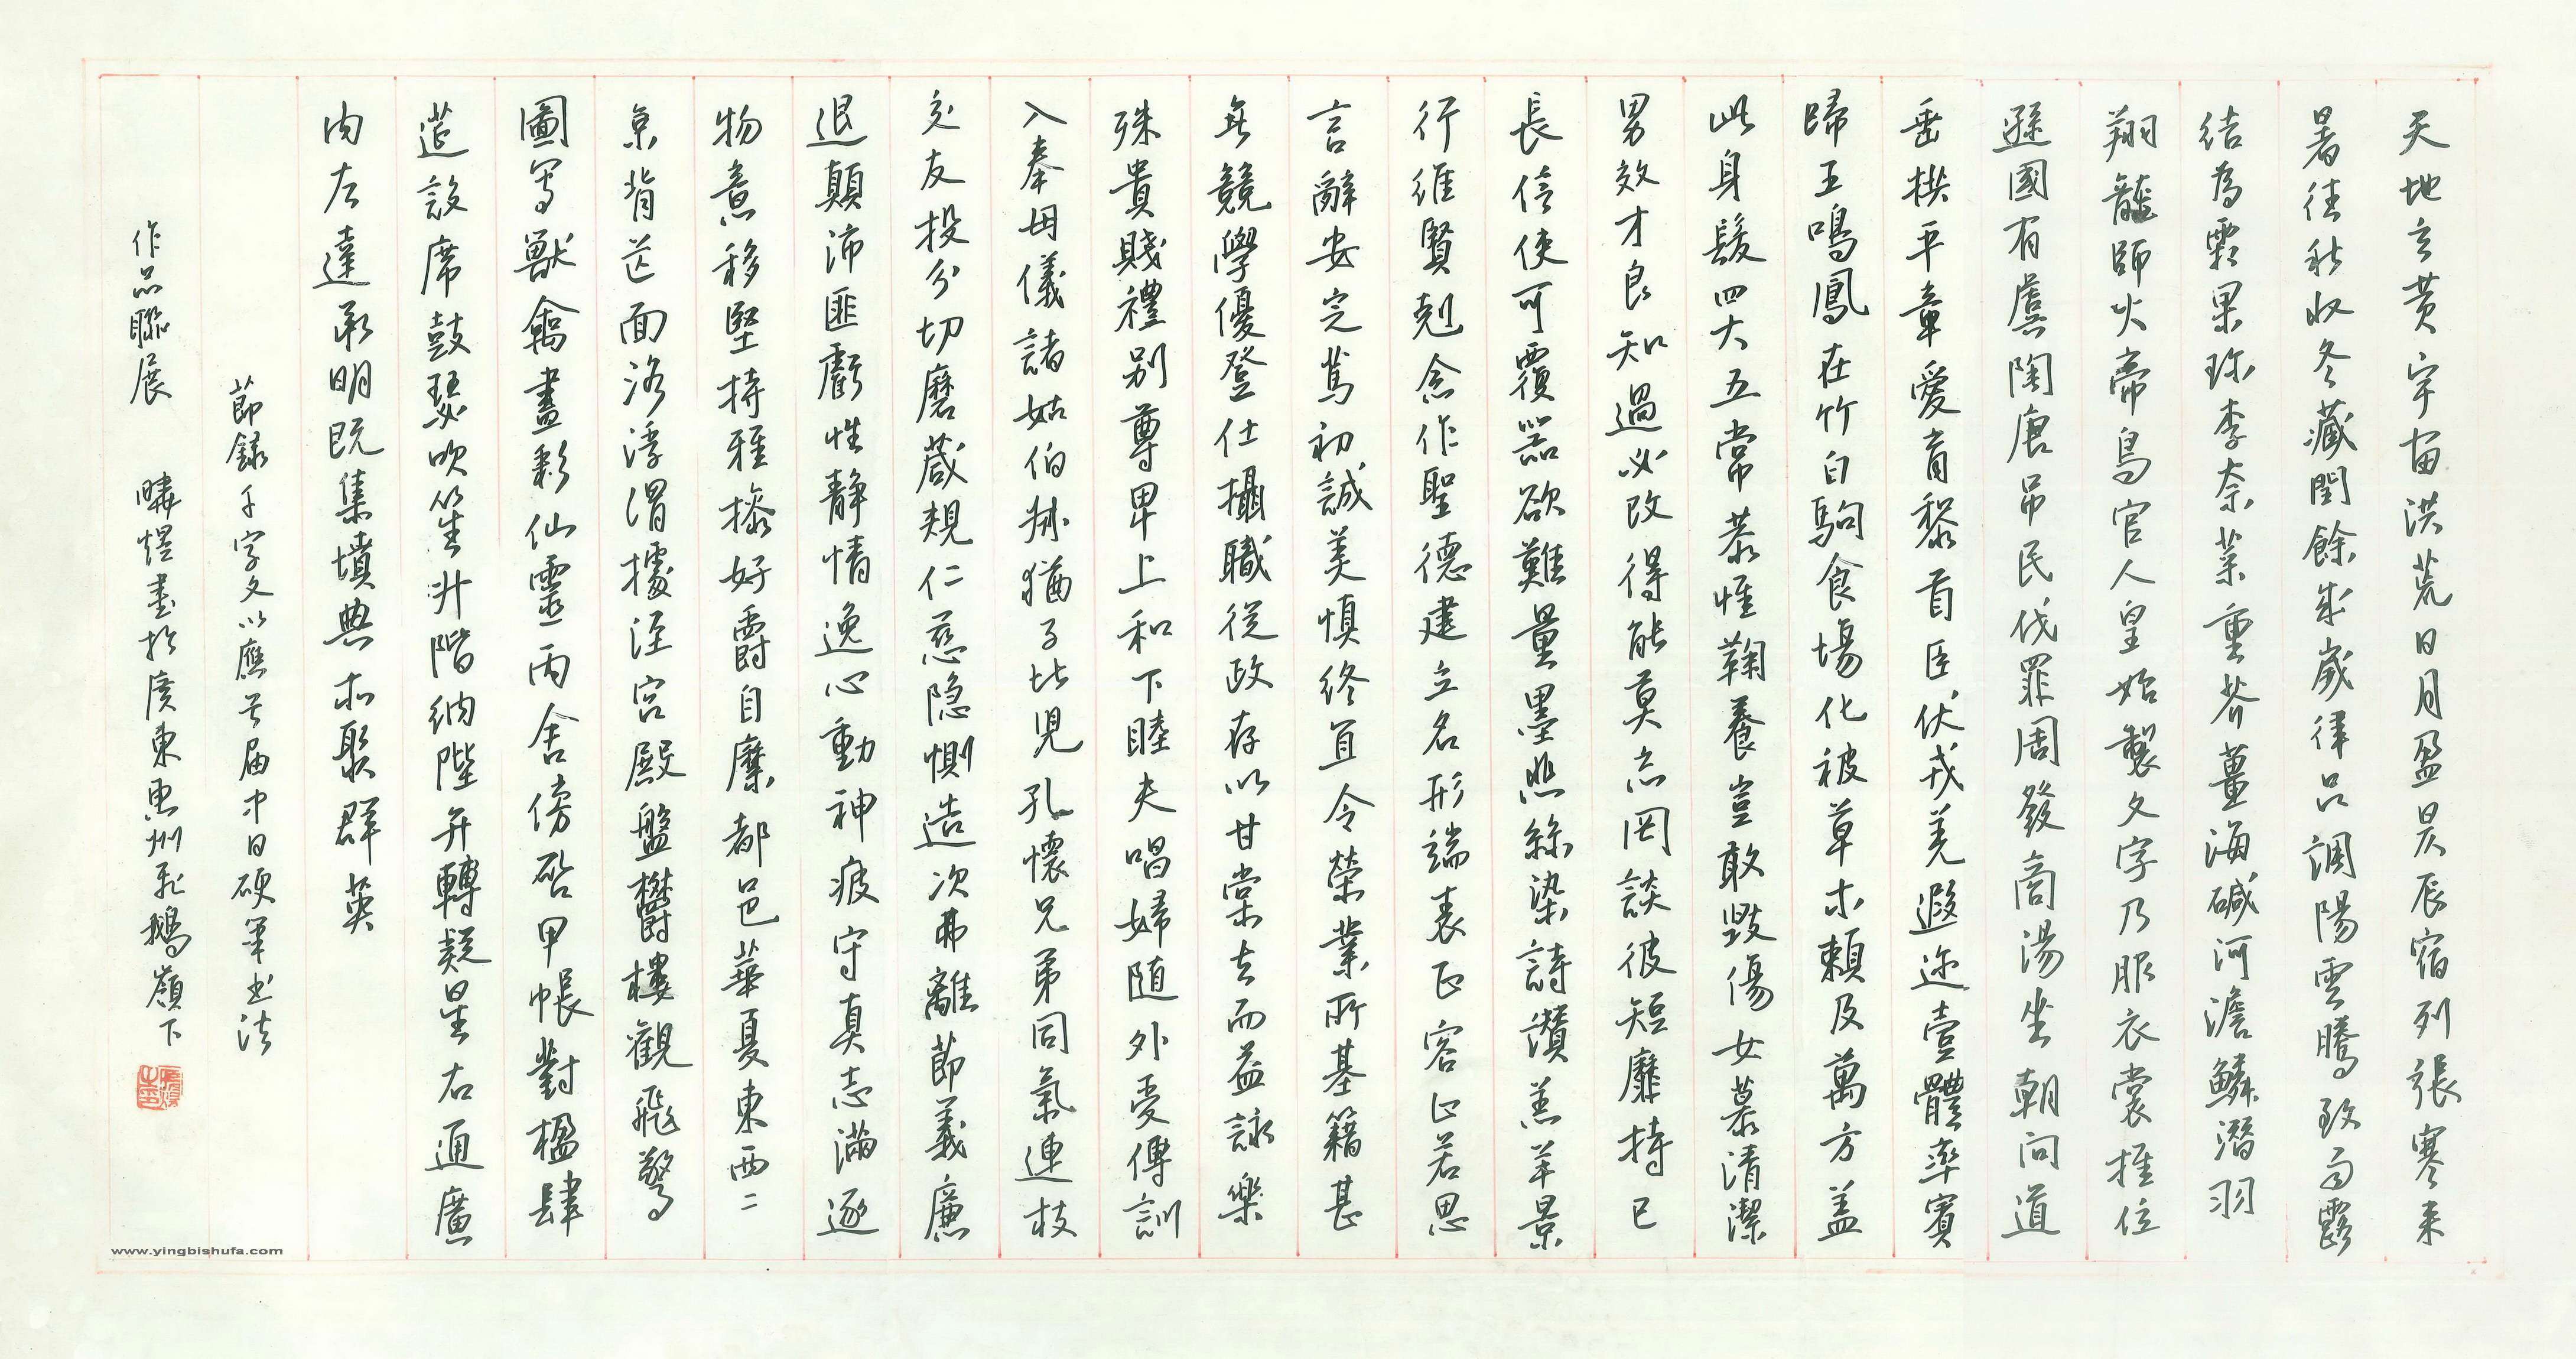 天地玄黄宇宙洪荒日月盈昃辰宿列張寒来
暑往秋收冬藏閏餘成歲律吕調陽雲騰致雨露
结為霜果珍李柰菜重芥薑海碱河澹鱗潛羽
翔龍師火帝鳥官人皇始製文字乃服衣裳推位
遜國有虞陶唐吊民伐罪周發商湯坐朝问道
垂拱平章愛育黎首臣伏戎羌遐迩壹體率賓
歸王鳴鳳在竹白駒食場化被草木賴及萬方盖
此身髮四大五常恭惟鞠養豈敢毀傷女慕清潔
男效才良知過必改得能莫忘罔談彼短靡恃己
長信使可覆器欲難量墨悲絲染詩讚羔羊景
行維賢剋念作聖德建立名形端表正容止若思
言辭安定篤初誠美慎終宜令榮業所基籍甚
無競學優登仕攝職從政存以甘棠去而益詠樂
殊貴賤禮别尊卑上和下睦夫唱婦随外受傅訓
入奉母儀諸姑伯叔猶子比兒孔懷兄弟同氣連枝
交友投分切磨葴規仁慈隐惻造次弗離節義廉
退顛沛匪虧性静情逸心動神疲守真志满逐
物意移堅持雅操好爵自縻都邑華夏東西二
京背芒面洛浮渭據涇宫殿盤鬱樓觀飛驚
圖写獸禽畫彩仙靈丙舍傍啓甲帳對楹肆
筵設席鼓瑟吹笙升階纳陛弁轉疑星右通廣
内左達承明既集墳典亦聚群英
節録千字文以應首届中日硬筆书法
作品聯展 煜書於廣東惠州飛鹅嶺下
www.yingbishufa.com